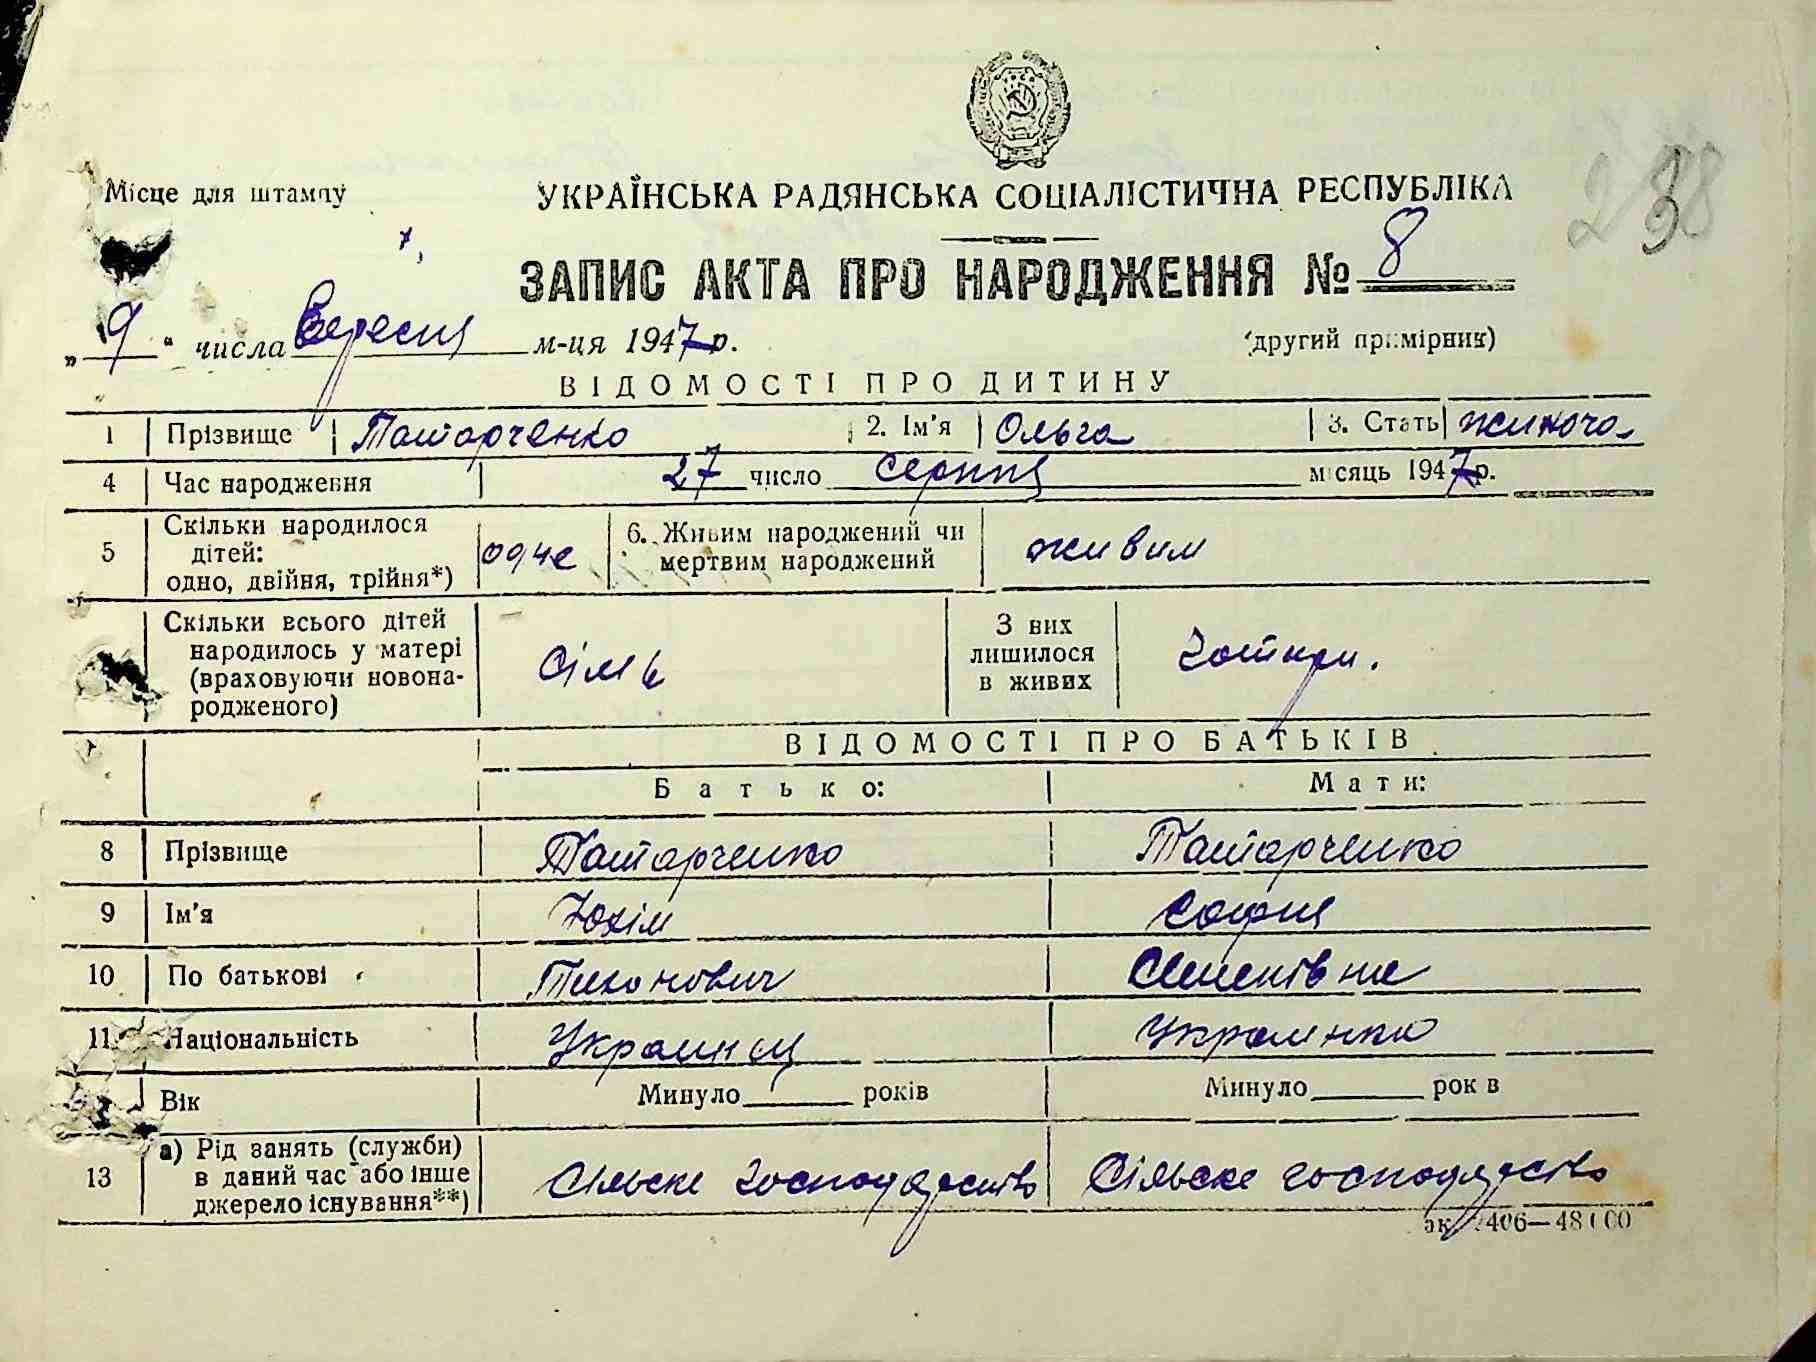 238
Місце для штампу
УКРАЇНСЬКА РАДЯНСЬКА СОЦІАЛІСТИЧНА РЕСПУБЛІКА
ЗАПИС АКТА ПРО НАРОДЖЕННЯ № 8
„ 9 “ числа Вересня м-ця 1947 р.
(другий примірник)
ВІДОМОСТІ ПРО ДИТИНУ
1 Прізвище Татарченко 2. Ім'я Ольга 3. Стать жиноча
4 Час народження 27 число серпня місяць 1947 р.
5 Скільки народилося дітей: одно, двійня, трійня*) одне 6. Живим народжений чи мертвим народжений живим
Скільки всього дітей народилось у матері (враховуючи новонародженого) сімь З них лишилося в живих чотири.
ВІДОМОСТІ ПРО БАТЬКІВ
Батько: Мати:
8 Прізвище Татарченко Татарченко
9 Ім'я Юхім София
10 По батькові Тихонович Семенівна
11 Національність Украинец Украинка
Вік Минуло років Минуло років
13 а) Рід занять (служби) в даний час або інше джерело існування**) Сільске господарство Сільске господарство